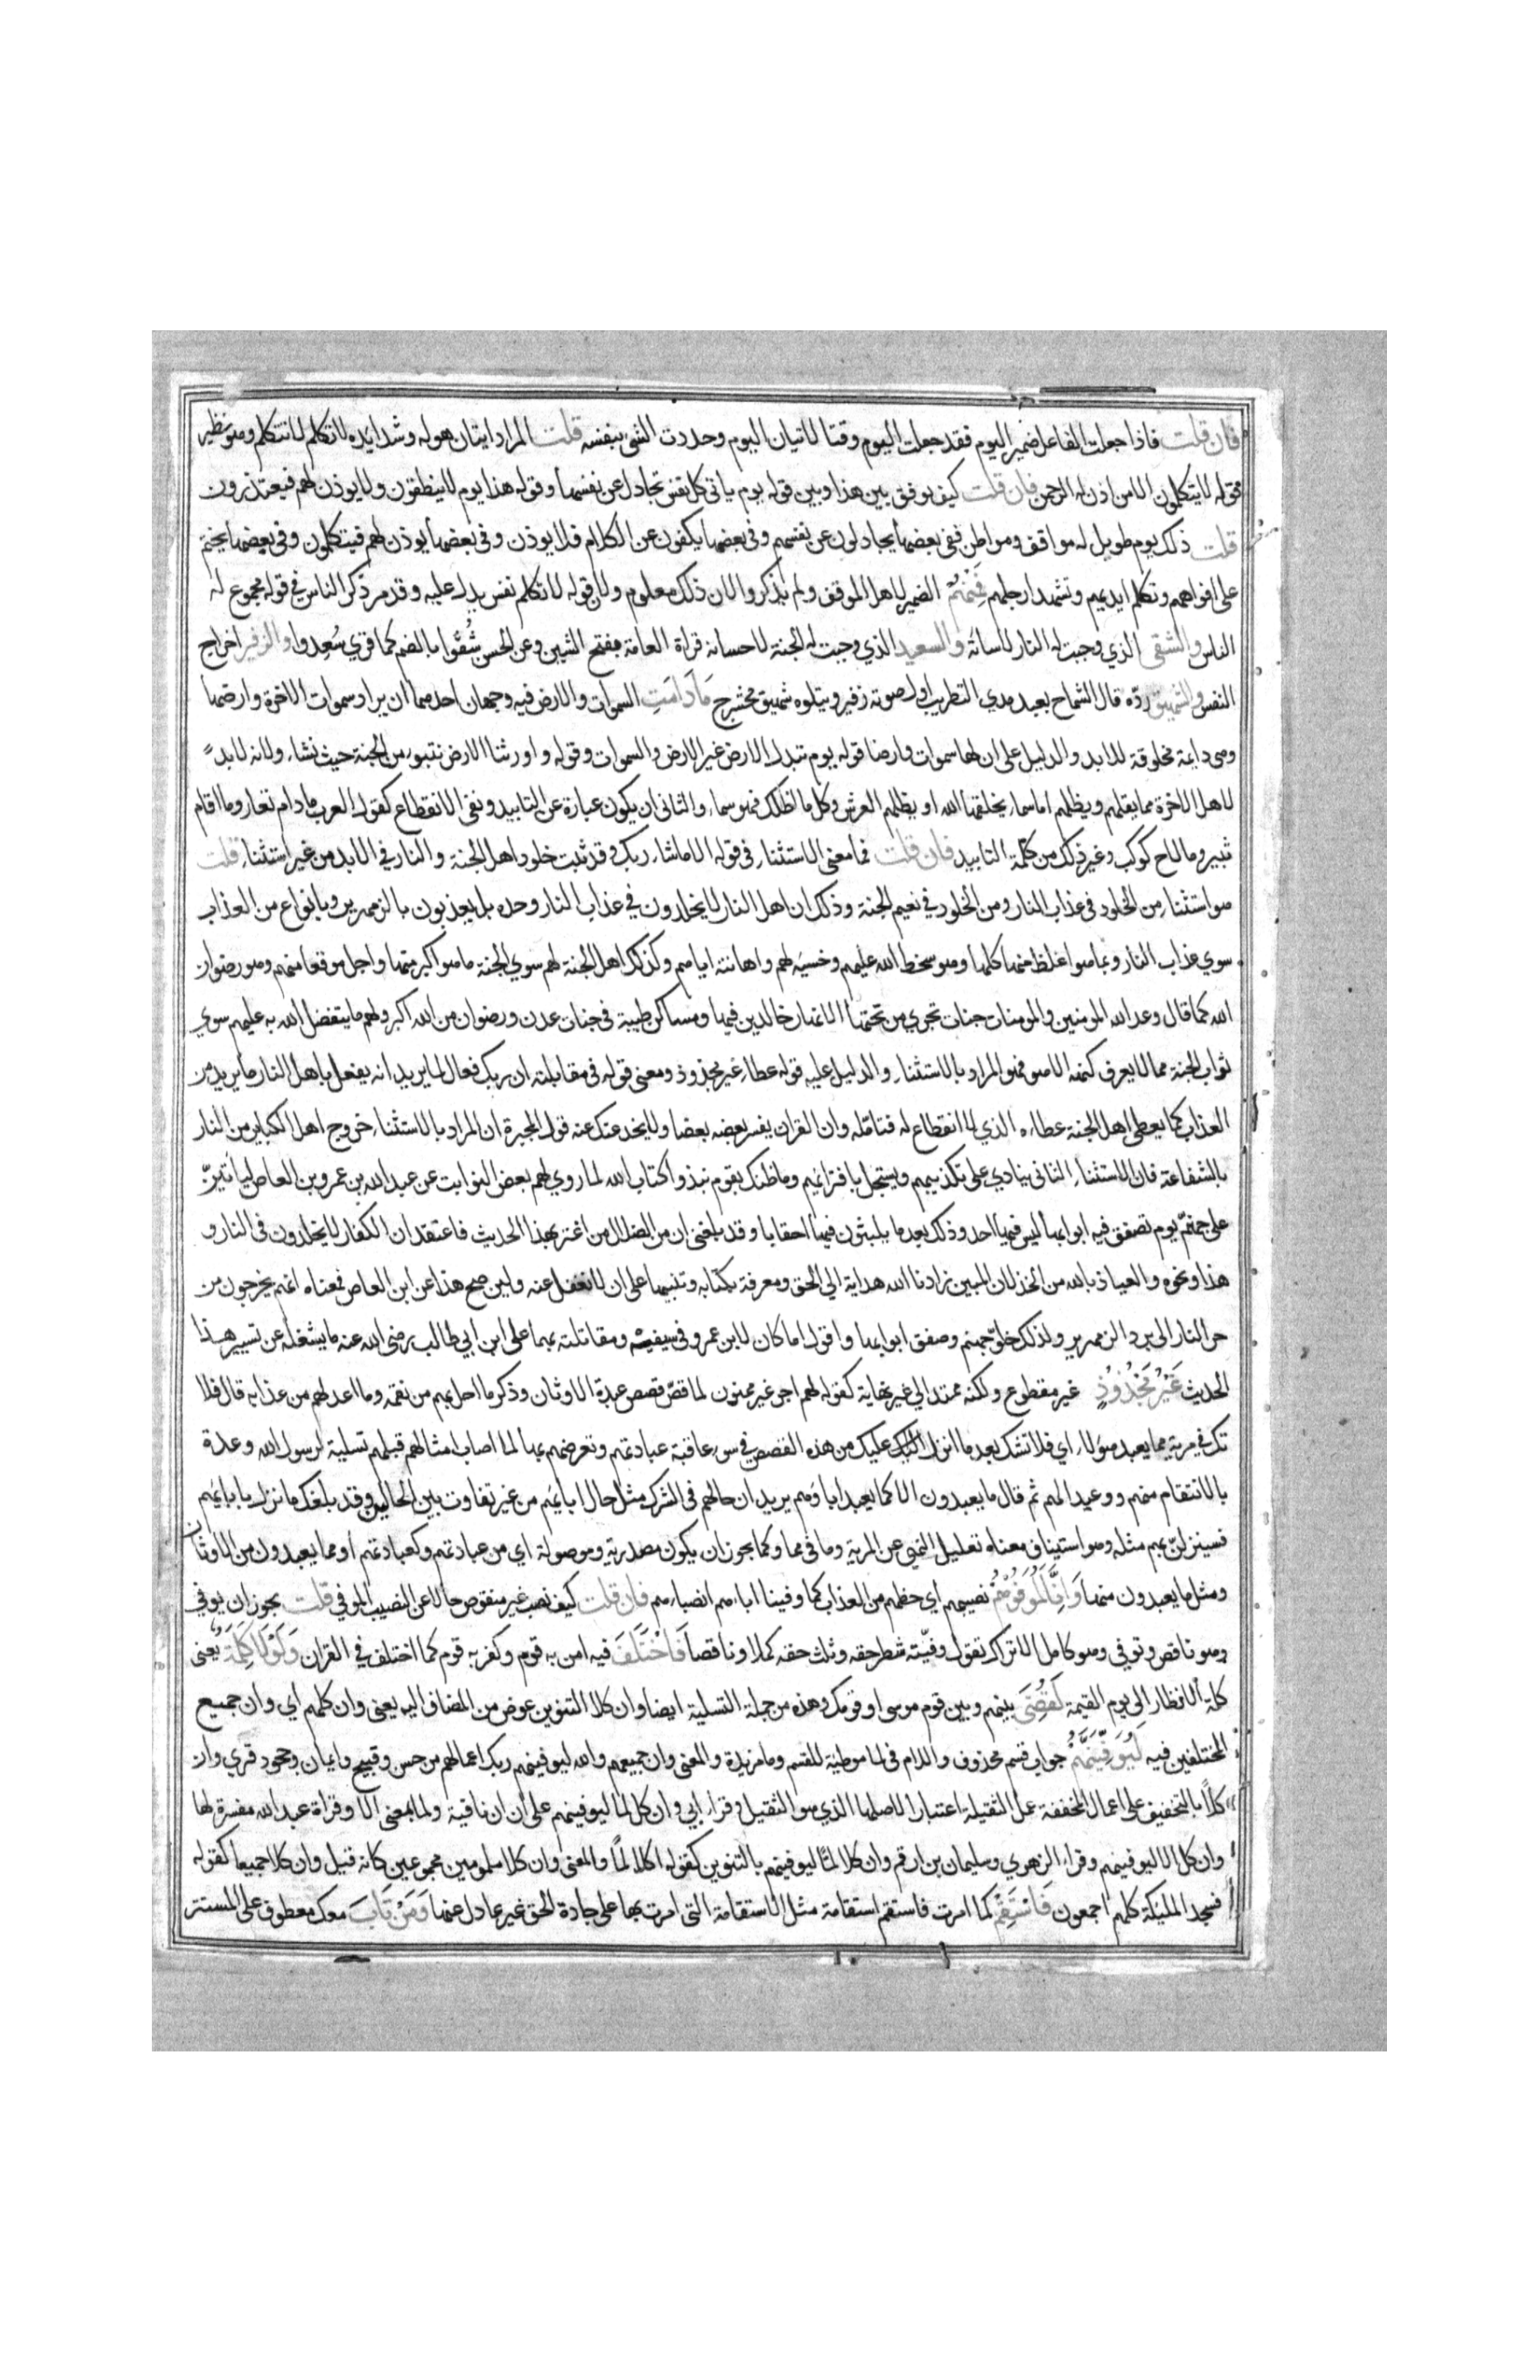 فان قلت فاذا جعلت الفاعل ضمير اليوم فقد جعلت اليوم وقتا لاتيان اليوم وحددت الشي بنفسه قلت المراد ايتان هوله وشدايده لا تكلم لا تتكلم وهو نظير
قوله لا يتكلمون الا من اذن له الرحمن فان قلت كيف يوفق بين هذا وبين قوله يوم ياتي كل نفس تجادل عن نفسها وقوله هذا يوم لا ينطقون ولا يوذن لهم فيعتذرون
قلت ذلك يوم طويل له مواقف ومواطن ففي بعضها يجادلون عن نفسهم وفي بعضها يكفون عن الكلام فلا يوذن وفي بعضها يوذن لهم فيتكلمون وفي بعضها يختم
على افواههم وتكلم ايديهم وتشهد ارجلهم فَمِنْهُمْ الضمير لاهل الموقف ولم يذكروا لان ذلك معلوم ولان قوله لا تكلم نفس يدل عليه وقد مر ذكر الناس في قوله مجموع له
الناس والشقى الذي وجبت له النار لاساته والسعيد الذي وجبت له الجنة لاحسانه قراة العامة بفتح الشين وعن الحسن شُقُوا بالضم كما قري سُعِدوا والزفير اخراج
النفس والشهيق ردّه قال الشماخ بعيد مدي التطريب اول صوته زفير ويتلوه شهيق محشرج مَا دَامَتِ السموات والارض فيه وجهان احدهما ان يراد سموات الاخرة وارضها
وهي دايمة مخلوقة للابد والدليل على ان لها سموات وارضا قوله يوم تبدل الارض غير الارض والسموات وقوله واورثنا الارض نتبوء من الجنة حيث نشاء ولانه لابدّ
لاهل الاخرة مما يقلهم ويظلهم اما سماء يخلقها الله او يظلهم العرش وكل ما اظلك فهو سماء والثاني ان يكون عبارة عن التابيد ونفي الانقطاع كقول العرب ما دام تعار وما اقام
ثبير وما لاح كوكب وغير ذلك من كلمة التابيد فان قلت فما معنى الاستثناء في قوله الا ما شاء ربك وقد ثبت خلود اهل الجنة والنار في الابد من غير استثناء قلت
هو استثناء من الخلود في عذاب النار ومن الخلود في نعيم الجنة وذلك ان اهل النار لا يخلدون في عذاب النار وحده بل يعذبون بالزمهرير وبانواع من العذاب
سوي عذاب النار وبما هو اغلظ منها كلها وهو سخط الله عليهم وخسيه لهم واهانته اياهم وكذلك اهل الجنة لهم سوي الجنة ما هو اكبر منها واجل موقعا منهم وهو رضوان
الله كما قال وعد الله المومنين والمومنات جنات تجري من تحتها الانهار خالدين فيها ومساكن طيبة في جنات عدن ورضوان من الله اكبر ولهم ما يتفضل الله به عليهم سوي
ثواب الجنة مما لا يعرف كنهه الا هو فهو المراد بالاستثناء والدليل عليه قوله عطاء غير مجذوذ ومعنى قوله في مقابلته ان ربك فعال لما يريد انه يفعل باهل النار ما يريد من
العذاب كما يعطي اهل الجنة عطاءه الذي لا انقطاع له فتامله وان القران يفسر بعضه بعضا ولا يخدعنك عنه قول المجبرة ان المراد بالاستثناء خروج اهل الكباير من النار
بالشفاعة فان الاستثناء الثاني ينادي على تكذيبهم ويستجل بافترايهم وما ظنك بقوم نبذوا كتاب الله لما روي لهم بعض النوابت عن عبد الله بن عمرو بن العاص ليأتينّ
على جهنم يوم تصفق فيه ابوابها ليس فيها احد وذلك بعد ما يلبثون فيها احقابا وقد بلغني ان من الضلال من اغتر بهذا الحديث فاعتقد ان الكفار لا يخلدون في النار و
هذا ونحوه والعياذ بالله من الخذلان المبين زادنا الله هداية الي الحق ومعرفة بكتابه وتنبيها على ان لا نغفل عنه ولين صح هذا عن ابن العاص فمعناه انهم يخرجون من
حر النار الى برد الزمهرير ولذلك خلوّ جهنم وصفق ابوابها واقول اما كان لابن عمرو في سيفيه ومقاتلته بهما على ابن ابي طالب رضي الله عنه ما يشغله عن تسيير هذا
الحديث غَيْرَ مَجْذُوذٍ غير مقطوع ولكنه ممتد الي غير نهاية كقوله لهم اجر غير ممنون لما قصّ قصص عبدة الاوثان وذكر ما احل بهم من نقمه وما اعد لهم من عذابه قال فلا
تك في مرية مما يعبد هؤلاء اي فلا تشك بعد ما انزل اليك عليك من هذه القصص في سوء عاقبة عبادتهم وتعرضهم بها لما اصاب امثالهم قبلهم تسلية لرسول الله وعدة
بالانتقام منهم ووعيد المهم ثم قال ما يعبدون الا كما يعبد اباؤهم يريد ان حالهم في الشرك مثل حال ابايهم من غير تفاوت بين الحالين وقد بلغك ما نزل بابايهم
فسينزلنّ بهم مثله وهو استيناف معناه تعليل النهي عن المرية وما في مما وكما يجوز ان يكون مصدرية وموصولة اي من عبادتهم وكعبادتهم او مما يعبدون من الاوثان
ومثل ما يعبدون منها وَاِنَّا لَمُوَفُّوهُمْ نصيبهم اي حظهم من العذاب كما وفينا اباءهم انصباءهم فان قلت كيف نصب غير منقوص حالا عن النصيب الموفى قلت يجوز ان يوفي
وهو ناقص وتوفي وهو كامل الا تراك تقول وفيّته شطر حقه وثلث حقه كملا وناقصا فَاخْتُلِفَ فيه امن به قوم وكفر به قوم كما اختلف في القران وَلَوْلَا كَلِمَةٌ يعني
كلمة الانظار الى يوم القيمة لَقُضِيَ بينهم وبين قوم موسى او قومك وهذه من جملة التسلية ايضا وان كلا التنوين عوض من المضاف اليه يعني وان كلهم اي وان جميع
المختلفين فيه لَيُوَفِّيَنَّهُمْ جواب قسم محذوف واللام في لما موطية للقسم وما مزيدة والمعنى وان جميعهم والله ليوفينهم ربك اعمالهم من حسن وقبيح وايمان وجحود قري وان
كلاً بالتخفيف على اعمال المخففة عمل الثقيلة اعتبارا لاصلها الذي هو الثقيل وقراء ابي وان كل لما ليوفينهم على ان ان نافية ولما بمعنى الا وقراة عبد الله مفسرة لها
وان كل الا ليوفينهم وقراء الزهري وسليمان بن ارقم وان كلا لمّا ليوفينهم بالتنوين كقوله اكلا لمّا والمعنى وان كلا ملمومين مجموعين كانه قيل وان كلا جميعا كقوله
فسجد المليكة كلهم اجمعون فَاسْتَقِمْ كما امرت فاستقم استقامة مثل الاستقامة التي امرت بها على جادة الحق غير عادل عنها وَمَنْ تَابَ معك معطوف على المستتر